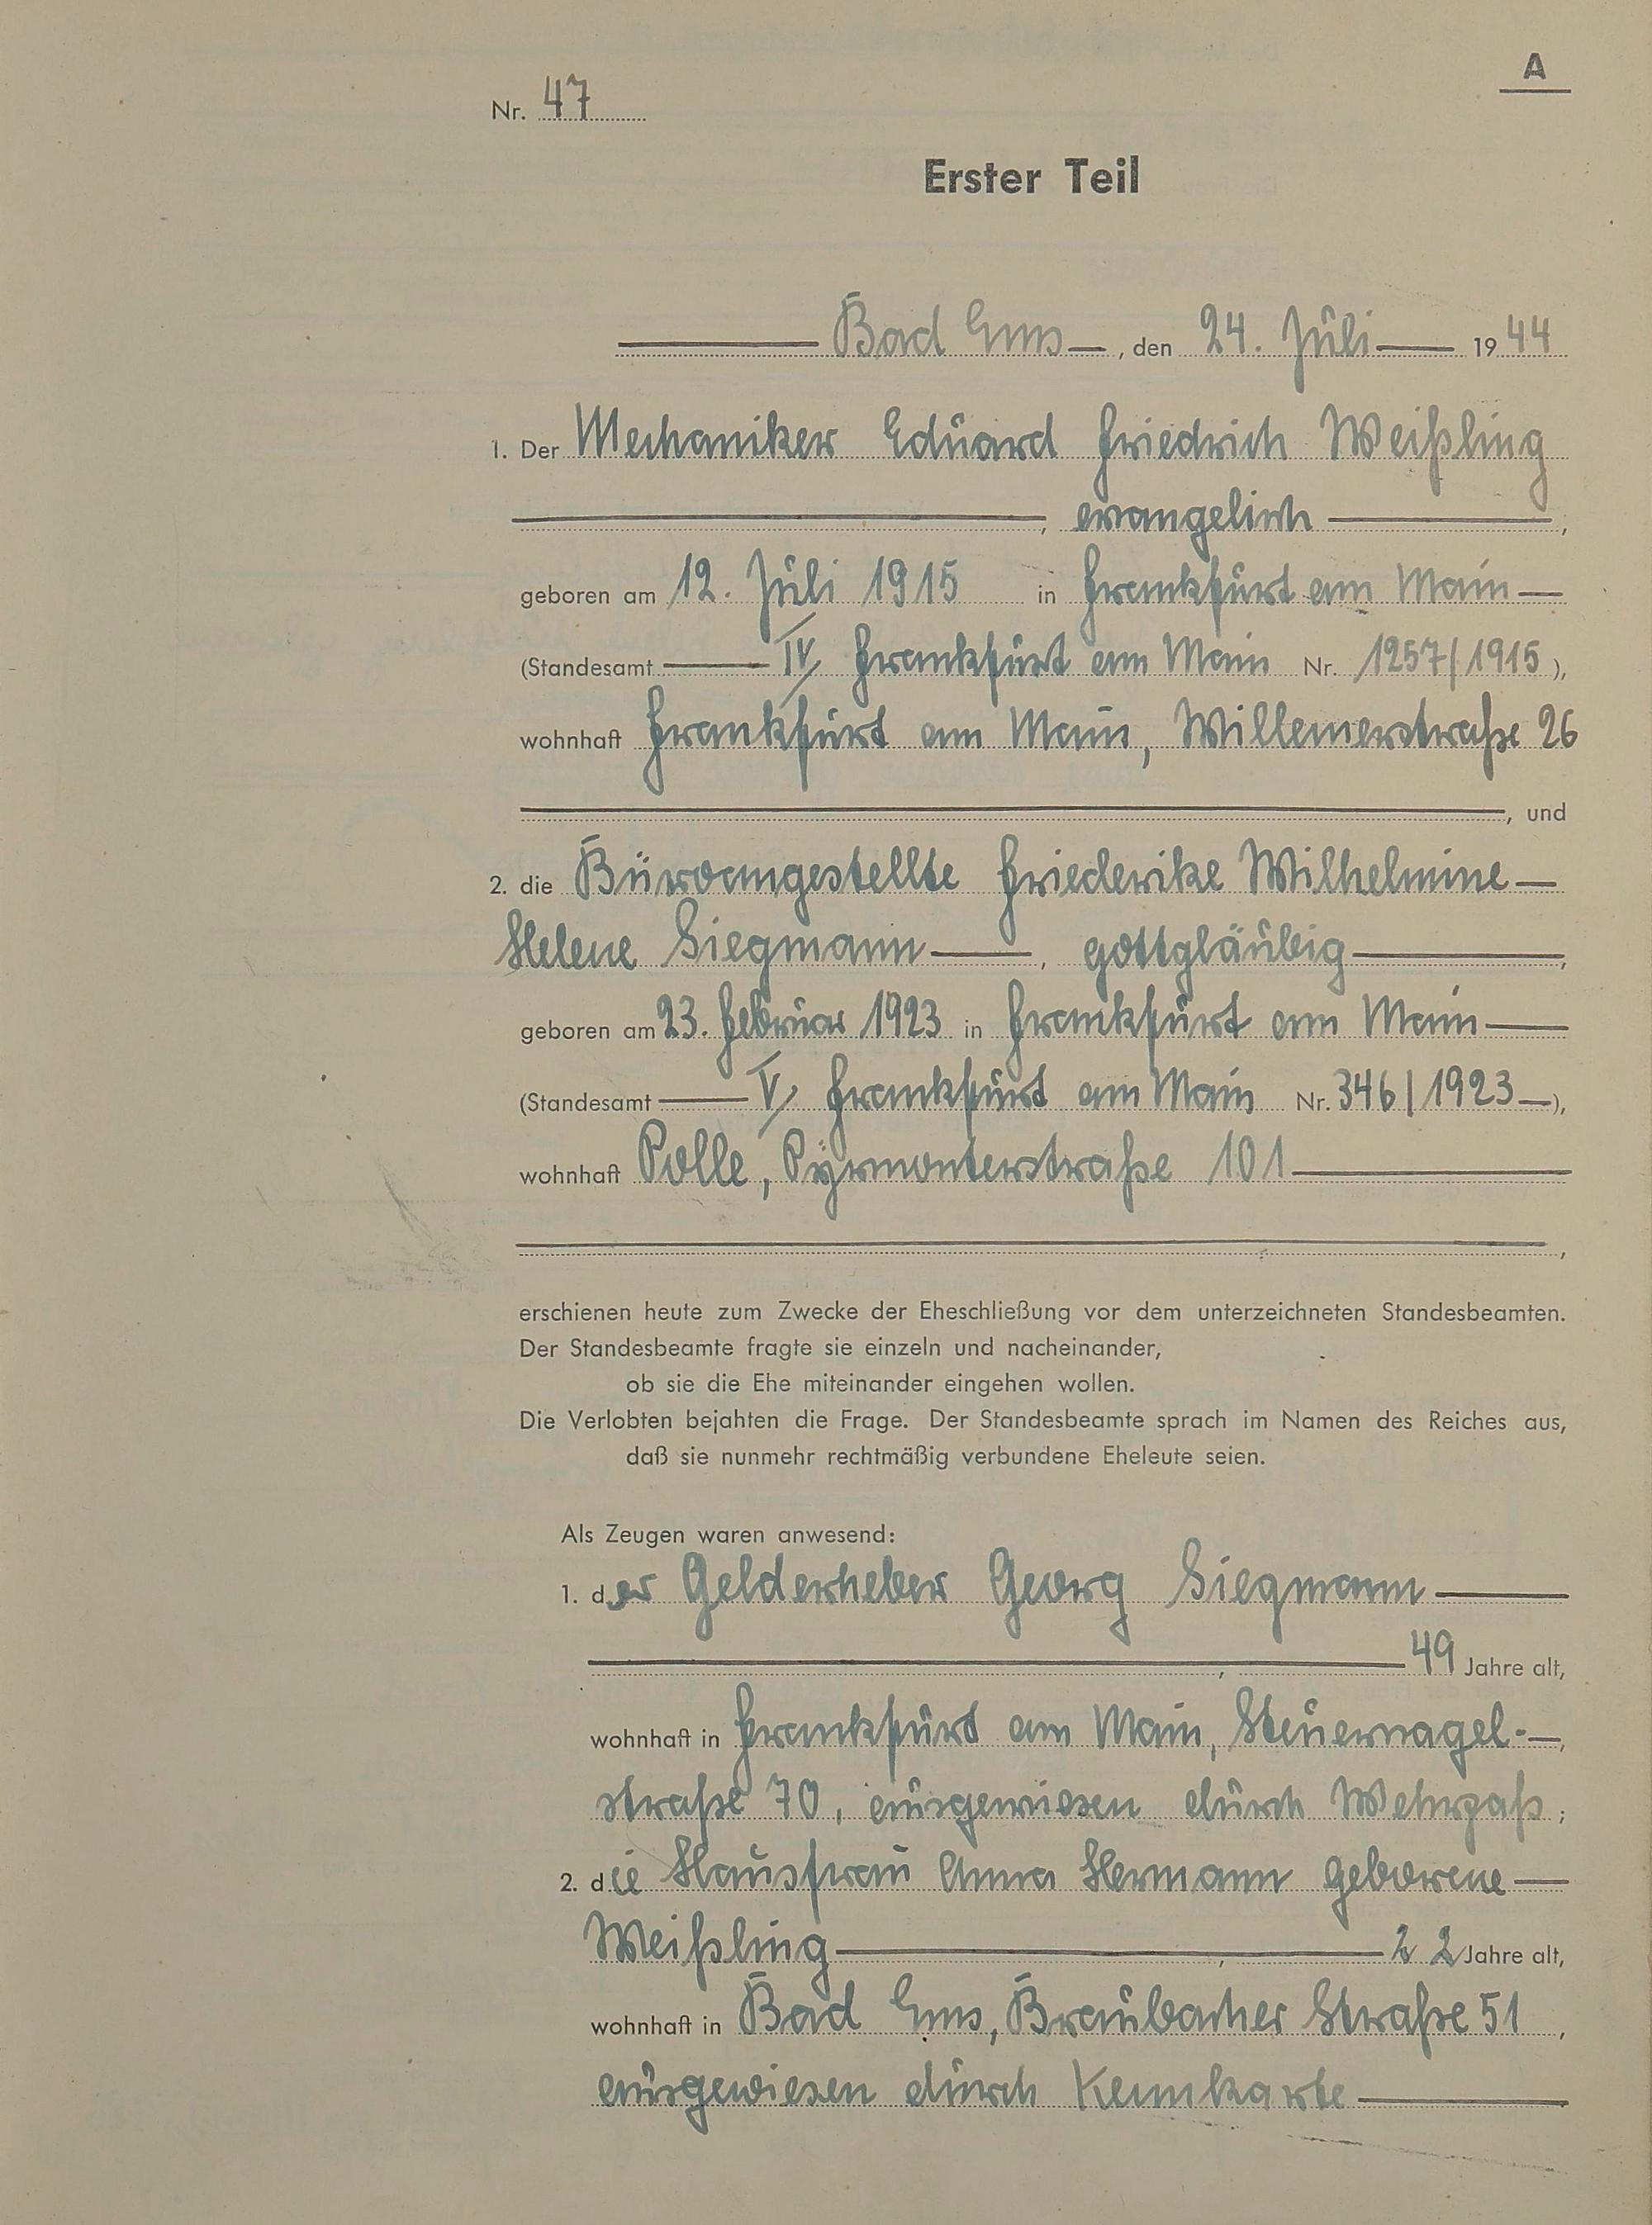 A
Nr. 47
Erster Teil
Bad Ems, den 24. Juli 1944
1. Der Mechaniker Eduard Friedrich Weißling
, evangelisch,
geboren am 12. Juli 1915 in Frankfurt am Main
(Standesamt IV, Frankfurt am Main Nr. 1257/1915),
wohnhaft Frankfurt am Main, Willemerstraße 26
, und
2. die Büroangestellte Friederike Wilhelmine
Helene Siegmann, gottgläubig,
geboren am 23. Februar 1923 in Frankfurt am Main
(Standesamt V, Frankfurt am Main Nr. 346/1923),
wohnhaft Polle, Pyrmonterstraße 101
,
erschienen heute zum Zwecke der Eheschließung vor dem unterzeichneten Standesbeamten.
Der Standesbeamte fragte sie einzeln und nacheinander,
ob sie die Ehe miteinander eingehen wollen.
Die Verlobten bejahten die Frage. Der Standesbeamte sprach im Namen des Reiches aus,
daß sie nunmehr rechtmäßig verbundene Eheleute seien.
Als Zeugen waren anwesend:
1. der Gelderheber Georg Siegmann
, 49 Jahre alt,
wohnhaft in Frankfurt am Main, Steuernagel-
straße 70, ausgewiesen durch Wehrpaß;
2. die Hausfrau Anna Hermann geborene
Weißling, 22 Jahre alt,
wohnhaft in Bad Ems, Braubacher Straße 51,
ausgewiesen durch Kennkarte